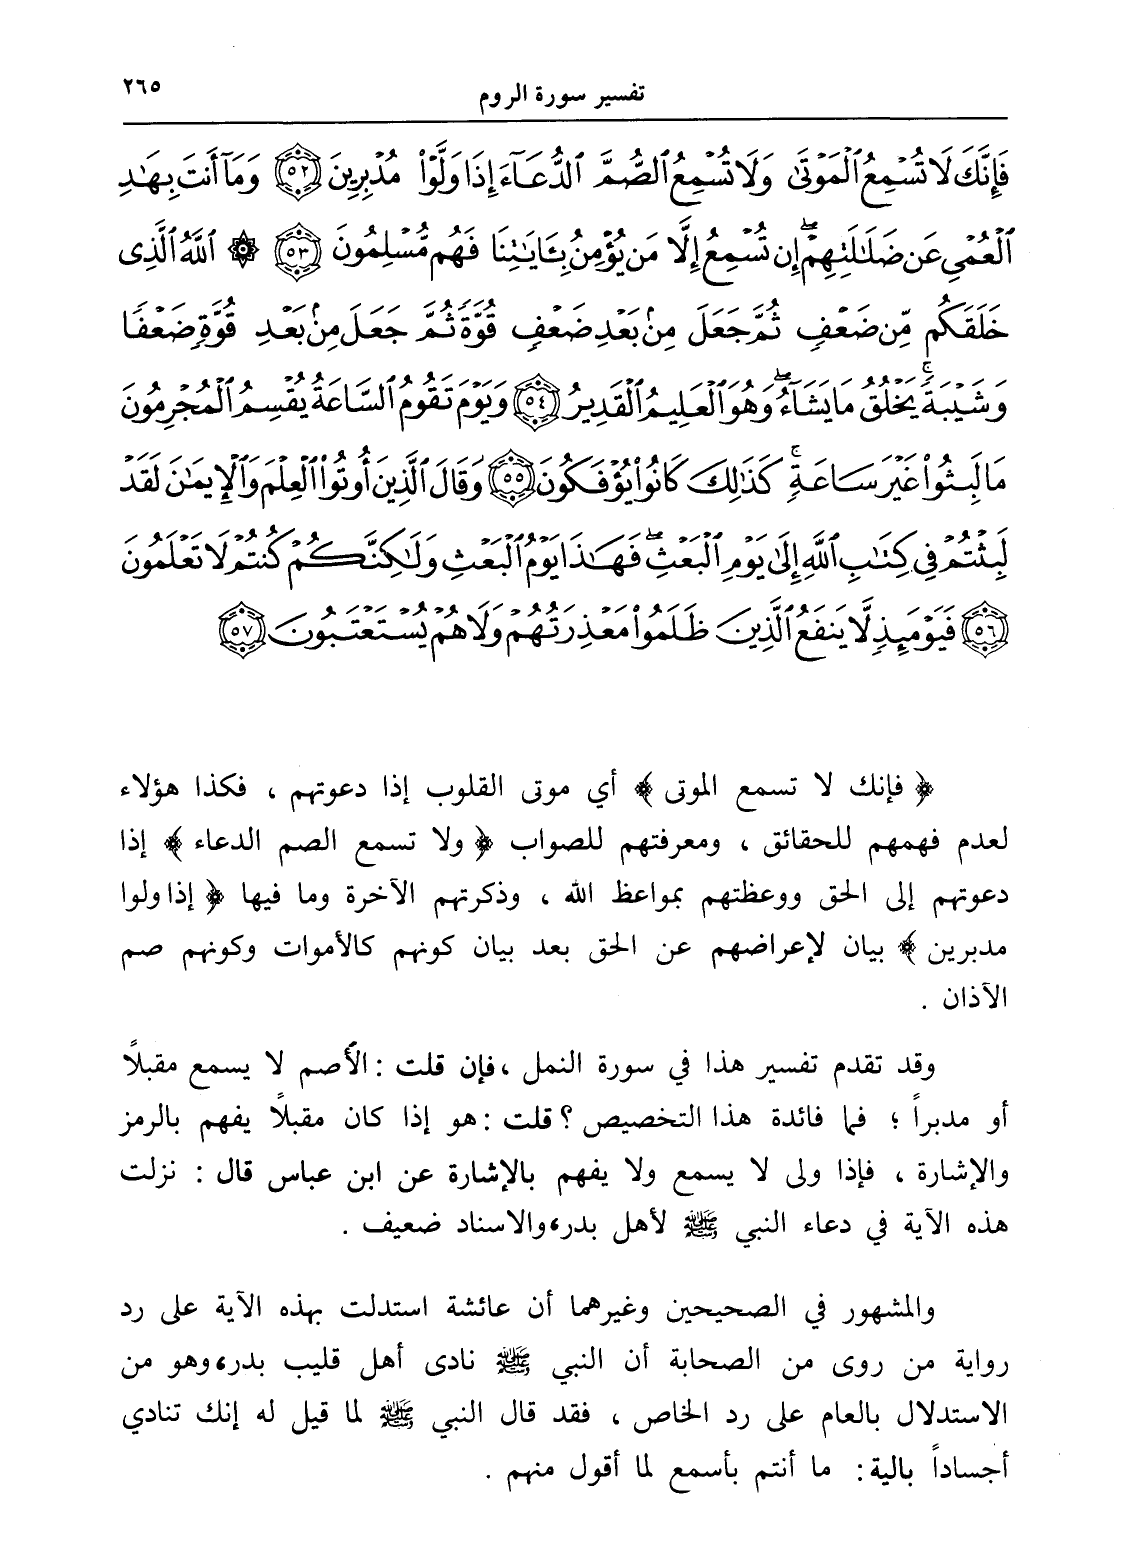 تفسير سورة الروم ٢٦٥
فَإِنَّكَ لَا تُسْمِعُ ٱلْمَوْتَىٰ وَلَا تُسْمِعُ ٱلصُّمَّ ٱلدُّعَآءَ إِذَا وَلَّوْا۟ مُدْبِرِينَ ٥٢ وَمَآ أَنتَ بِهَـٰدِ
ٱلْعُمْىِ عَن ضَلَـٰلَتِهِمْ ۖ إِن تُسْمِعُ إِلَّا مَن يُؤْمِنُ بِـَٔايَـٰتِنَا فَهُم مُّسْلِمُونَ ٥٣ ۞ ٱللَّهُ ٱلَّذِى
خَلَقَكُم مِّن ضَعْفٍ ثُمَّ جَعَلَ مِنۢ بَعْدِ ضَعْفٍ قُوَّةً ثُمَّ جَعَلَ مِنۢ بَعْدِ قُوَّةٍ ضَعْفًا
وَشَيْبَةً ۚ يَخْلُقُ مَا يَشَآءُ ۖ وَهُوَ ٱلْعَلِيمُ ٱلْقَدِيرُ ٥٤ وَيَوْمَ تَقُومُ ٱلسَّاعَةُ يُقْسِمُ ٱلْمُجْرِمُونَ
مَا لَبِثُوا۟ غَيْرَ سَاعَةٍ ۚ كَذَٰلِكَ كَانُوا۟ يُؤْفَكُونَ ٥٥ وَقَالَ ٱلَّذِينَ أُوتُوا۟ ٱلْعِلْمَ وَٱلْإِيمَـٰنَ لَقَدْ
لَبِثْتُمْ فِى كِتَـٰبِ ٱللَّهِ إِلَىٰ يَوْمِ ٱلْبَعْثِ ۖ فَهَـٰذَا يَوْمُ ٱلْبَعْثِ وَلَـٰكِنَّكُمْ كُنتُمْ لَا تَعْلَمُونَ
٥٦ فَيَوْمَئِذٍ لَّا يَنفَعُ ٱلَّذِينَ ظَلَمُوا۟ مَعْذِرَتُهُمْ وَلَا هُمْ يُسْتَعْتَبُونَ ٥٧
﴿ فإنك لا تسمع الموتى ﴾ أي موتى القلوب إذا دعوتهم ، فكذا هؤلاء
لعدم فهمهم للحقائق ، ومعرفتهم للصواب ﴿ ولا تسمع الصم الدعاء ﴾ إذا
دعوتهم إلى الحق ووعظتهم بمواعظ الله ، وذكرتهم الآخرة وما فيها ﴿ إذا ولوا
مدبرين ﴾ بيان لإعراضهم عن الحق بعد بيان كونهم كالأموات وكونهم صم
الآذان .
وقد تقدم تفسير هذا في سورة النمل ، فإن قلت : الأصم لا يسمع مقبلاً
أو مدبراً ؛ فما فائدة هذا التخصيص ؟ قلت : هو إذا كان مقبلاً يفهم بالرمز
والإشارة ، فإذا ولى لا يسمع ولا يفهم بالإشارة عن ابن عباس قال : نزلت
هذه الآية في دعاء النبي ﷺ لأهل بدر، والاسناد ضعيف .
والمشهور في الصحيحين وغيرهما أن عائشة استدلت بهذه الآية على رد
رواية من روى من الصحابة أن النبي ﷺ نادى أهل قليب بدر، وهو من
الاستدلال بالعام على رد الخاص ، فقد قال النبي ﷺ لما قيل له إنك تنادي
أجساداً بالية : ما أنتم بأسمع لما أقول منهم .